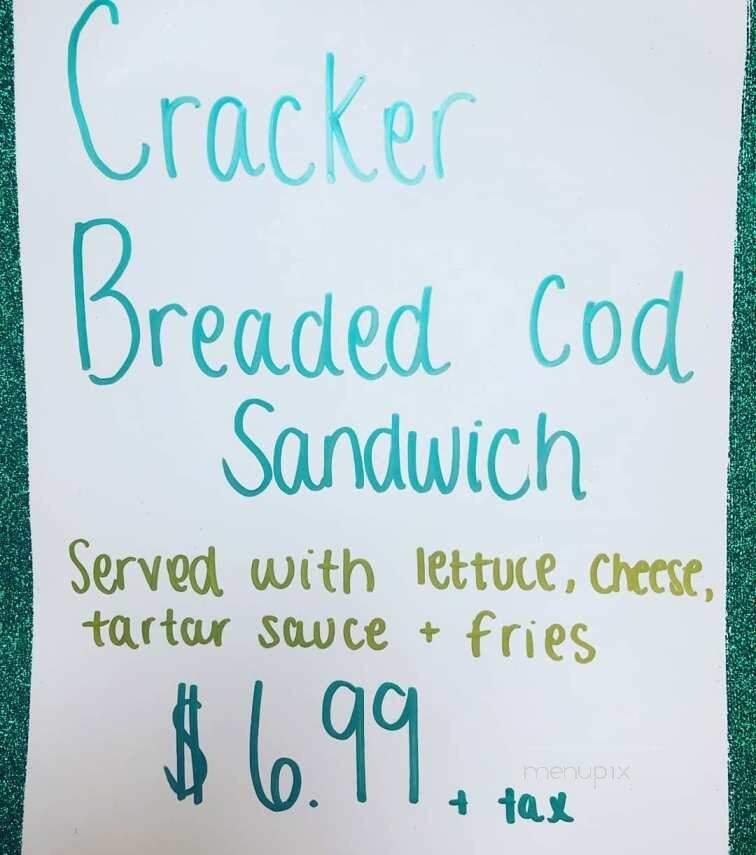 Cracker
Breaded Cod
Sandwich
Served with lettuce, cheese,
tartar sauce + fries
$6.99 + tax
menupix